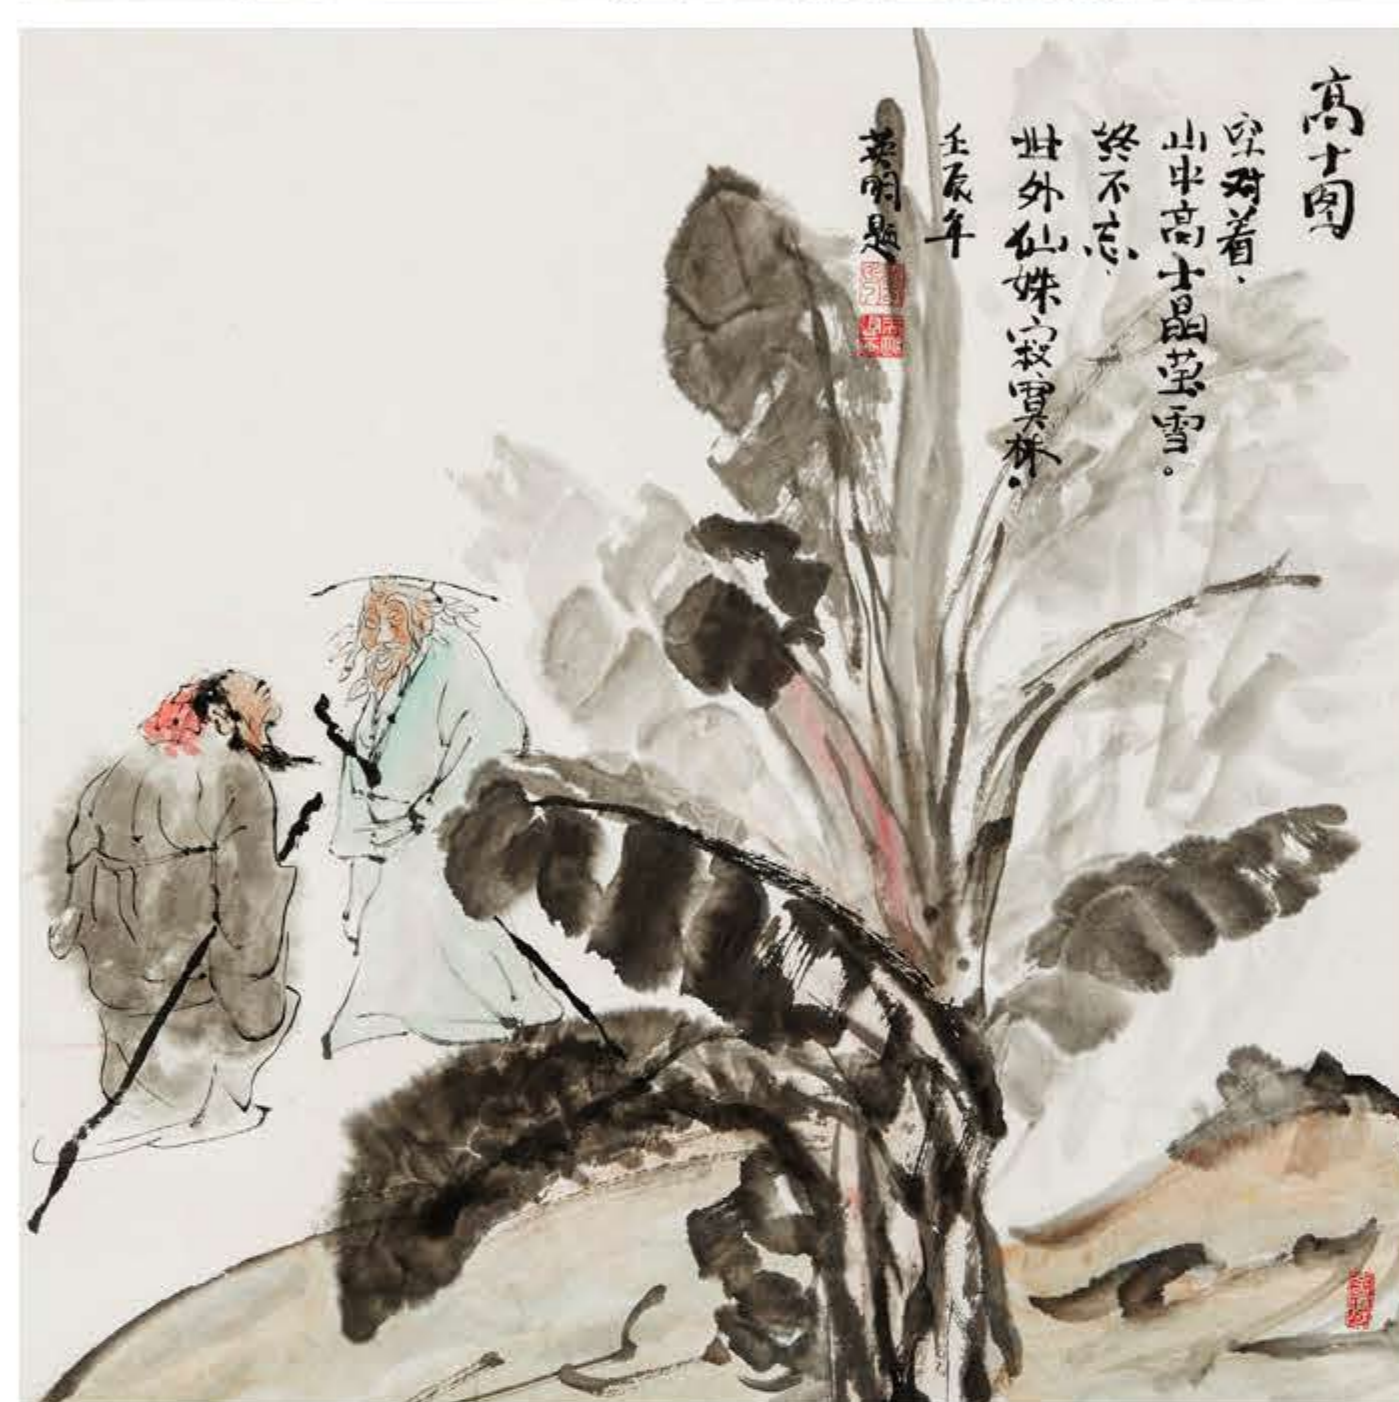 高士图
空对着，
山中高士晶莹雪。
終不忘，
世外仙姝寂寞林。
壬辰年
英明题